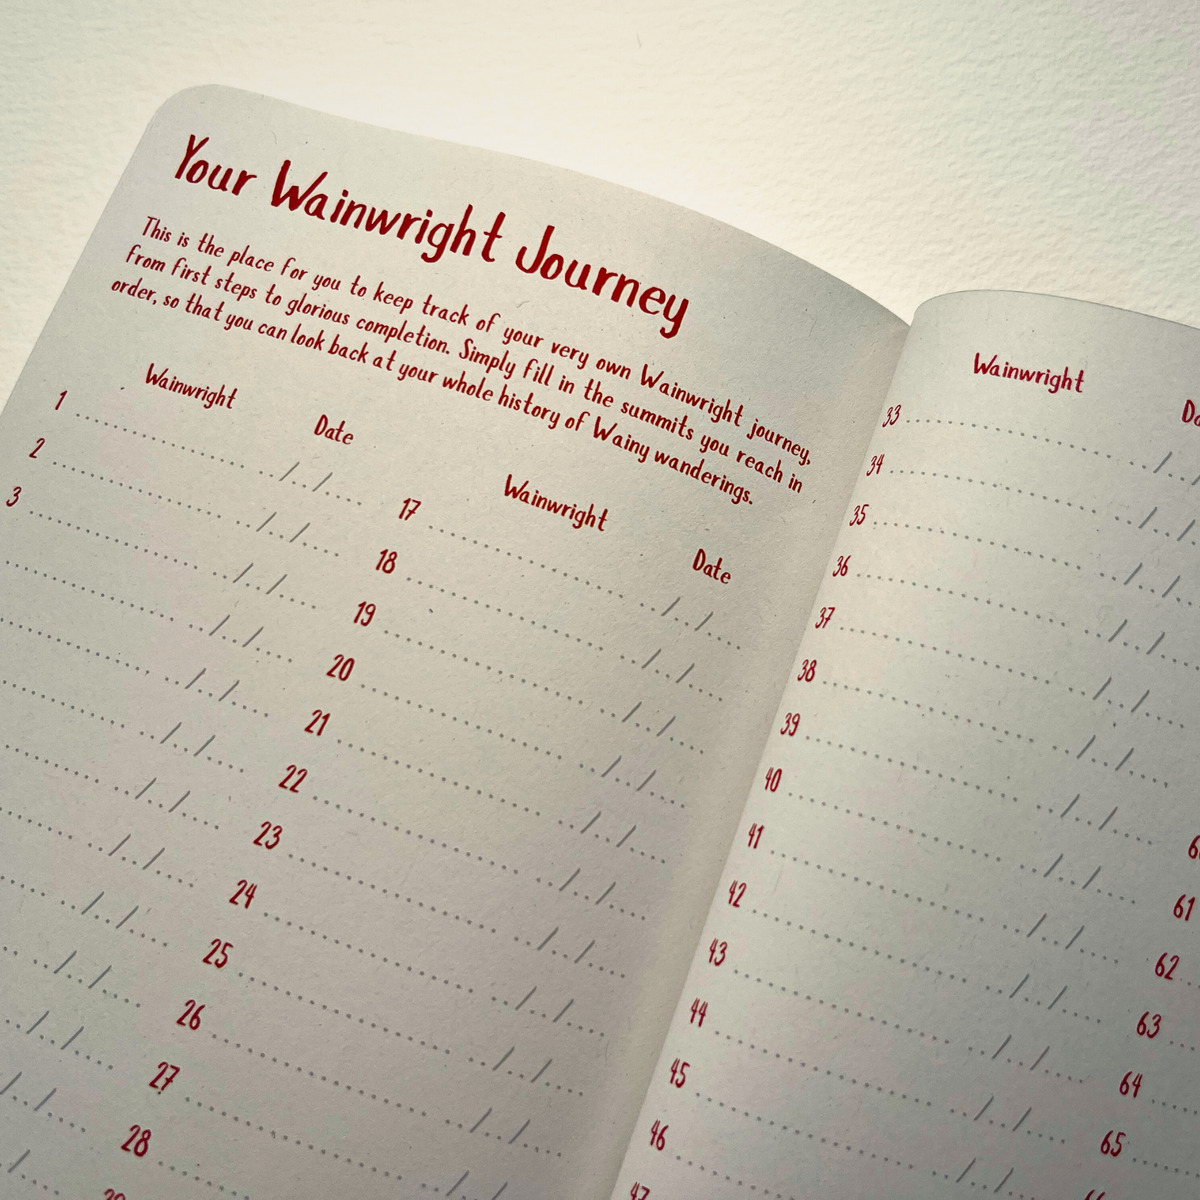 Your Wainwright Journey
This is the place for you to keep track of your very own Wainwright journey,
from first steps to glorious completion. Simply fill in the summits you reach in
order, so that you can look back at your whole history of Wainy wanderings.
Wainwright Date
1 ../../..
2 ../../..
3 ../../..
Wainwright Date
17 ../../..
18 ../../..
19 ../../..
20 ../../..
21 ../../..
22 ../../..
23 ../../..
24 ../../..
25 ../../..
26 ../../..
27 ../../..
28
Wainwright
33
34
35
36
37
38
39
40
41
42
43
44
45
46
47
61
62
63
64
65